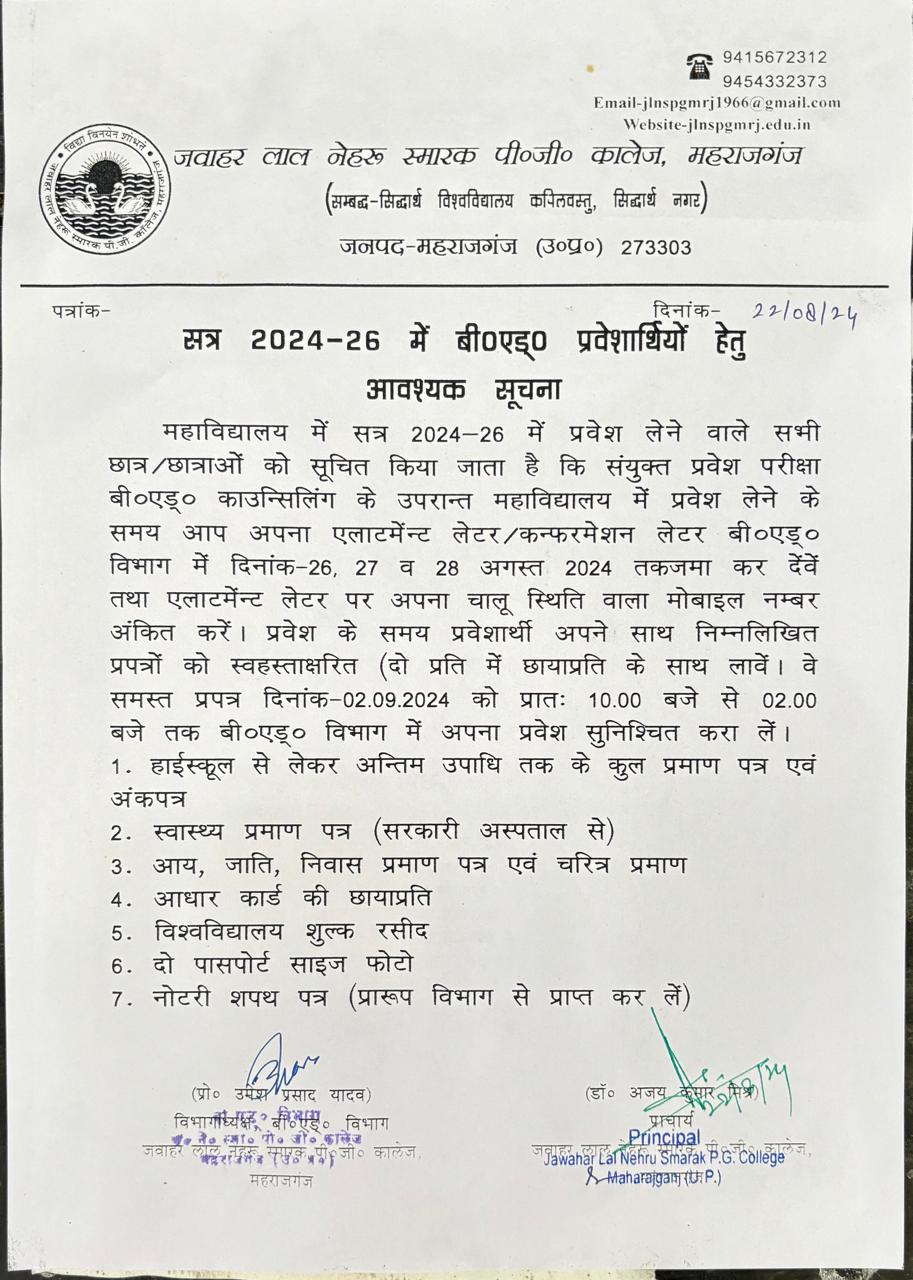 9415672312
9454332373
Email-jlnspgmrj1966@gmail.com
Website-jlnspgmrj.edu.in
विद्या विनयेन शोभते
जवाहर लाल नेहरू स्मारक पी.जी. कॉलेज, महराजगंज
जवाहर लाल नेहरू स्मारक पी०जी० कालेज, महराजगंज
(सम्बद्ध-सिद्धार्थ विश्वविद्यालय कपिलवस्तु, सिद्धार्थ नगर)
जनपद-महराजगंज (उ०प्र०) 273303
पत्रांक-
दिनांक- 22/08/24
सत्र 2024-26 में बी०एड्० प्रवेशार्थियों हेतु
आवश्यक सूचना
महाविद्यालय में सत्र 2024-26 में प्रवेश लेने वाले सभी
छात्र/छात्राओं को सूचित किया जाता है कि संयुक्त प्रवेश परीक्षा
बी०एड्० काउन्सिलिंग के उपरान्त महाविद्यालय में प्रवेश लेने के
समय आप अपना एलाटमेंन्ट लेटर/कन्फरमेशन लेटर बी०एड्०
विभाग में दिनांक-26, 27 व 28 अगस्त 2024 तकजमा कर देंवें
तथा एलाटमेंन्ट लेटर पर अपना चालू स्थिति वाला मोबाइल नम्बर
अंकित करें। प्रवेश के समय प्रवेशार्थी अपने साथ निम्नलिखित
प्रपत्रों को स्वहस्ताक्षरित (दो प्रति में छायाप्रति के साथ लावें। वे
समस्त प्रपत्र दिनांक-02.09.2024 को प्रातः 10.00 बजे से 02.00
बजे तक बी०एड्० विभाग में अपना प्रवेश सुनिश्चित करा लें।
1. हाईस्कूल से लेकर अन्तिम उपाधि तक के कुल प्रमाण पत्र एवं
अंकपत्र
2. स्वास्थ्य प्रमाण पत्र (सरकारी अस्पताल से)
3. आय, जाति, निवास प्रमाण पत्र एवं चरित्र प्रमाण
4. आधार कार्ड की छायाप्रति
5. विश्वविद्यालय शुल्क रसीद
6. दो पासपोर्ट साइज फोटो
7. नोटरी शपथ पत्र (प्रारूप विभाग से प्राप्त कर लें)
(प्रो० उमेश प्रसाद यादव)
विभागाध्यक्ष, बी०एड्० विभाग
जवाहर लाल नेहरू स्मारक पी०जी० कालेज,
महराजगंज
(डॉ० अजय कुमार मिश्र)
प्राचार्य
जवाहर लाल नेहरू स्मारक पी०जी० कालेज,
Principal
Jawahar Lal Nehru Smarak P.G. College
Maharajganj (U.P.)